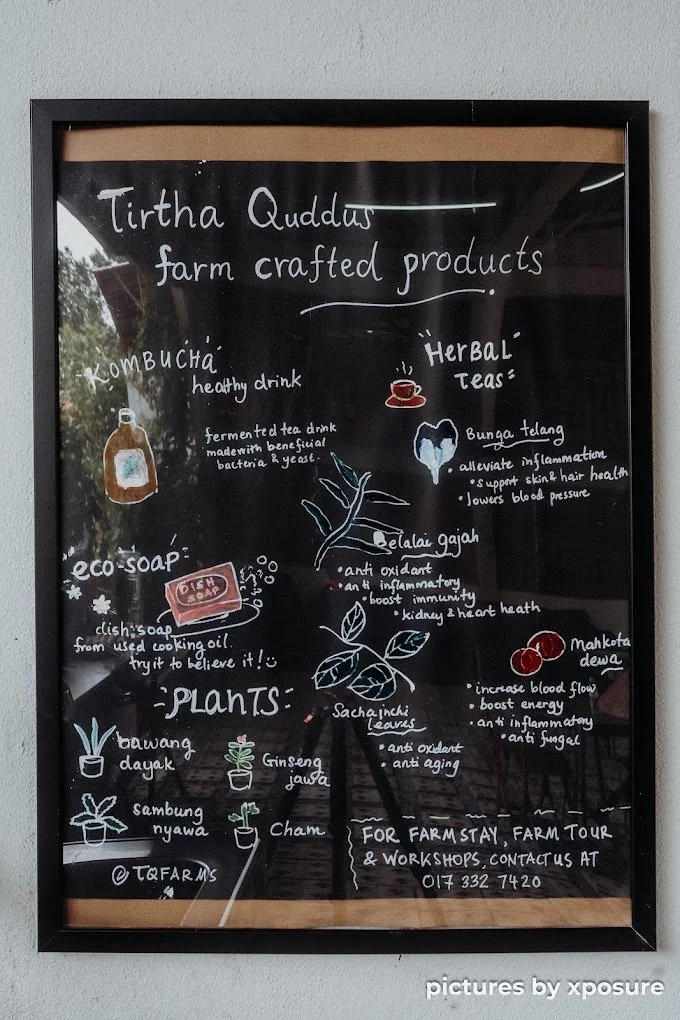 Tirtha Quddus
farm crafted products
KOMBUCHA
healthy drink
fermented tea drink
made with beneficial
bacteria & yeast.
Herbal
Teas
Bunga telang
• alleviate inflammation
• support skin & hair health
• lowers blood pressure
Belalai gajah
• anti oxidant
• anti inflammatory
• boost immunity
• kidney & heart heath
eco-soap
DISH
SOAP
dish soap
from used cooking oil.
try it to believe it!
Sacha inchi
leaves
• anti oxidant
• anti aging
Mahkota
dewa
• increase blood flow
• boost energy
• anti inflammatory
• anti fungal
PLANTS
bawang
dayak
Ginseng
jawa
sambung
nyawa
Cham
@TQFARMS
FOR FARMSTAY, FARM TOUR
& WORKSHOPS, CONTACT US AT
017 332 7420
pictures by xposure